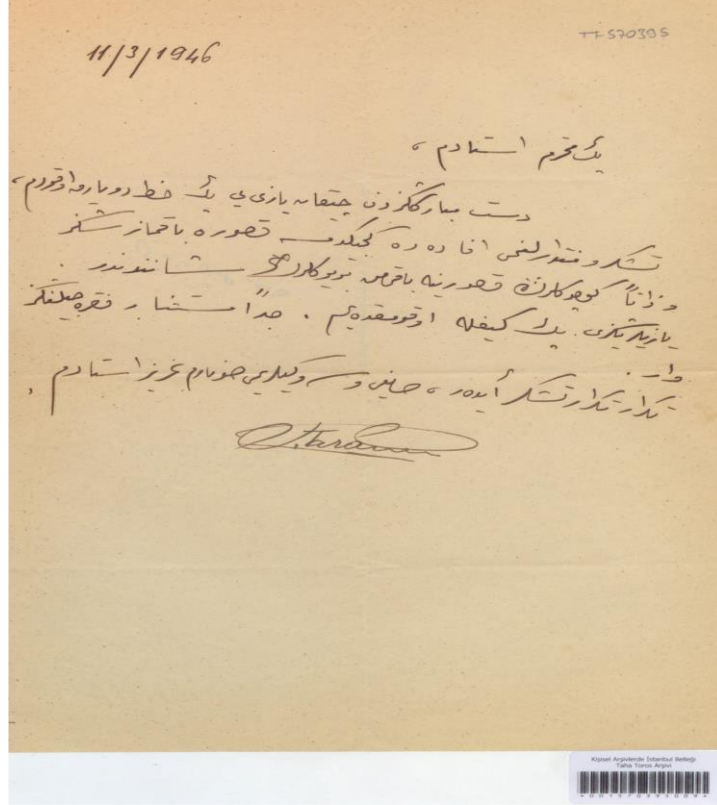 TT-570395
11/3/1946
پك محترم استادم ،
دست مباركڭزدن چيقان يازى يى پك حظ دويارق اوقودم ،
تشكر و منتدارلغمى افاده ده كجيكدم سه قصوره باقمازسڭز
و ذاتاً كوچوكلرڭ قصورينه باقمامق بويوكلرڭ شانندندر .
يازيلريڭزى پك كيفله اوقومقده يم . جداً مستثنا بر فقره جيلڭز
وار .
تكرار تكرار تشكر ايدر ، صايغى و سوكيلريمى صونارم عزيز استادم .
Kişisel Arşivlerde İstanbul Belleği
Taha Toros Arşivi